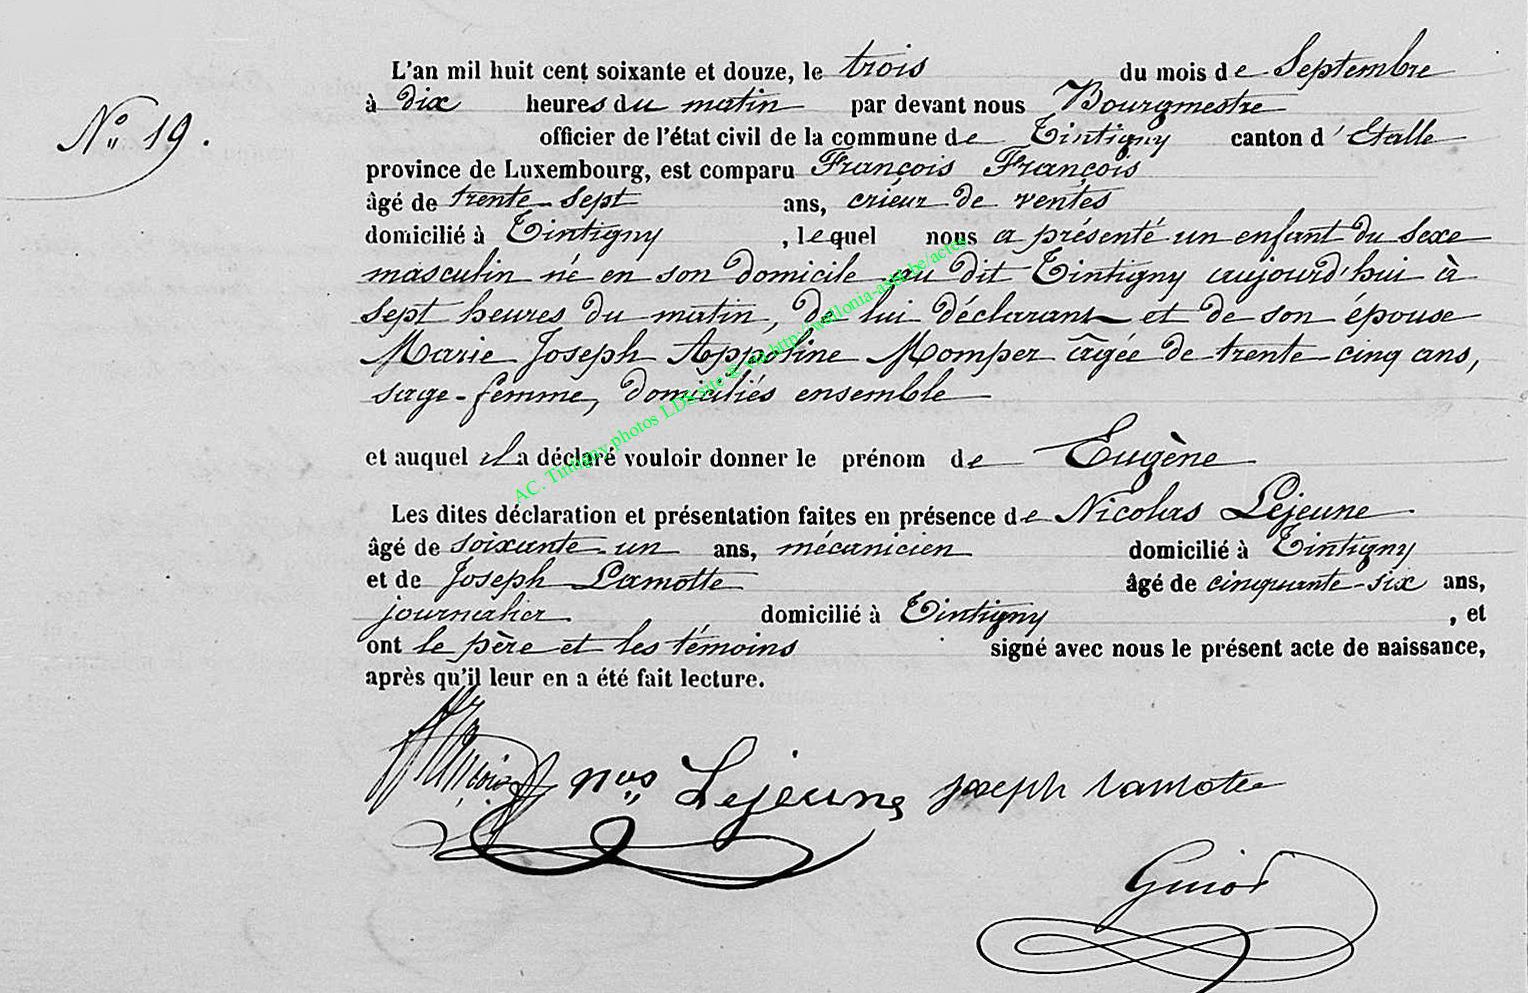 L'an mil huit cent soixante et douze, le trois du mois de Septembre
N° 19.
à dix heures du matin par devant nous Bourgmestre
officier de l'état civil de la commune de Tintigny canton d'Etalle
province de Luxembourg, est comparu François François
âgé de trente-sept ans, crieur de ventes
domicilié à Tintigny, lequel nous a présenté un enfant du sexe
masculin né en son domicile au dit Tintigny aujourd'hui à
sept heures du matin, de lui déclarant et de son épouse
Marie Joseph Appoline Momper âgée de trente-cinq ans,
sage-femme, domiciliés ensemble
et auquel il a déclaré vouloir donner le prénom de Eugène
Les dites déclaration et présentation faites en présence de Nicolas Lejeune
âgé de soixante-un ans, mécanicien domicilié à Tintigny
et de Joseph Lamotte âgé de cinquante-six ans,
journalier domicilié à Tintigny, et
ont le père et les témoins signé avec nous le présent acte de naissance,
après qu'il leur en a été fait lecture.
nas Lejeune joseph lamotte
Guiot
AC. Tintigny photos LDS site & via http://wallonia-asbl.be/actes